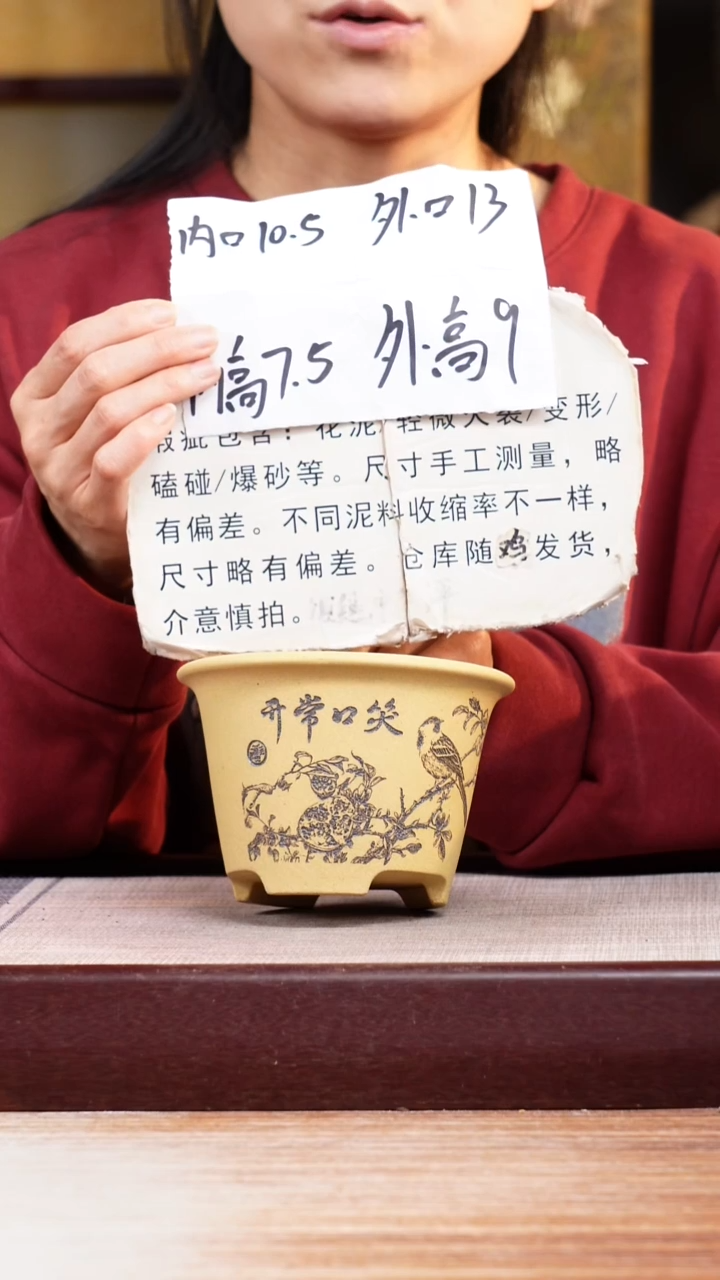 内口10.5 外口13
高7.5 外高9
瑕疵包含：花泥/轻微火裂/变形/
磕碰/爆砂等。尺寸手工测量，略
有偏差。不同泥料收缩率不一样，
尺寸略有偏差。仓库随鸡发货，
介意慎拍。
开常口笑